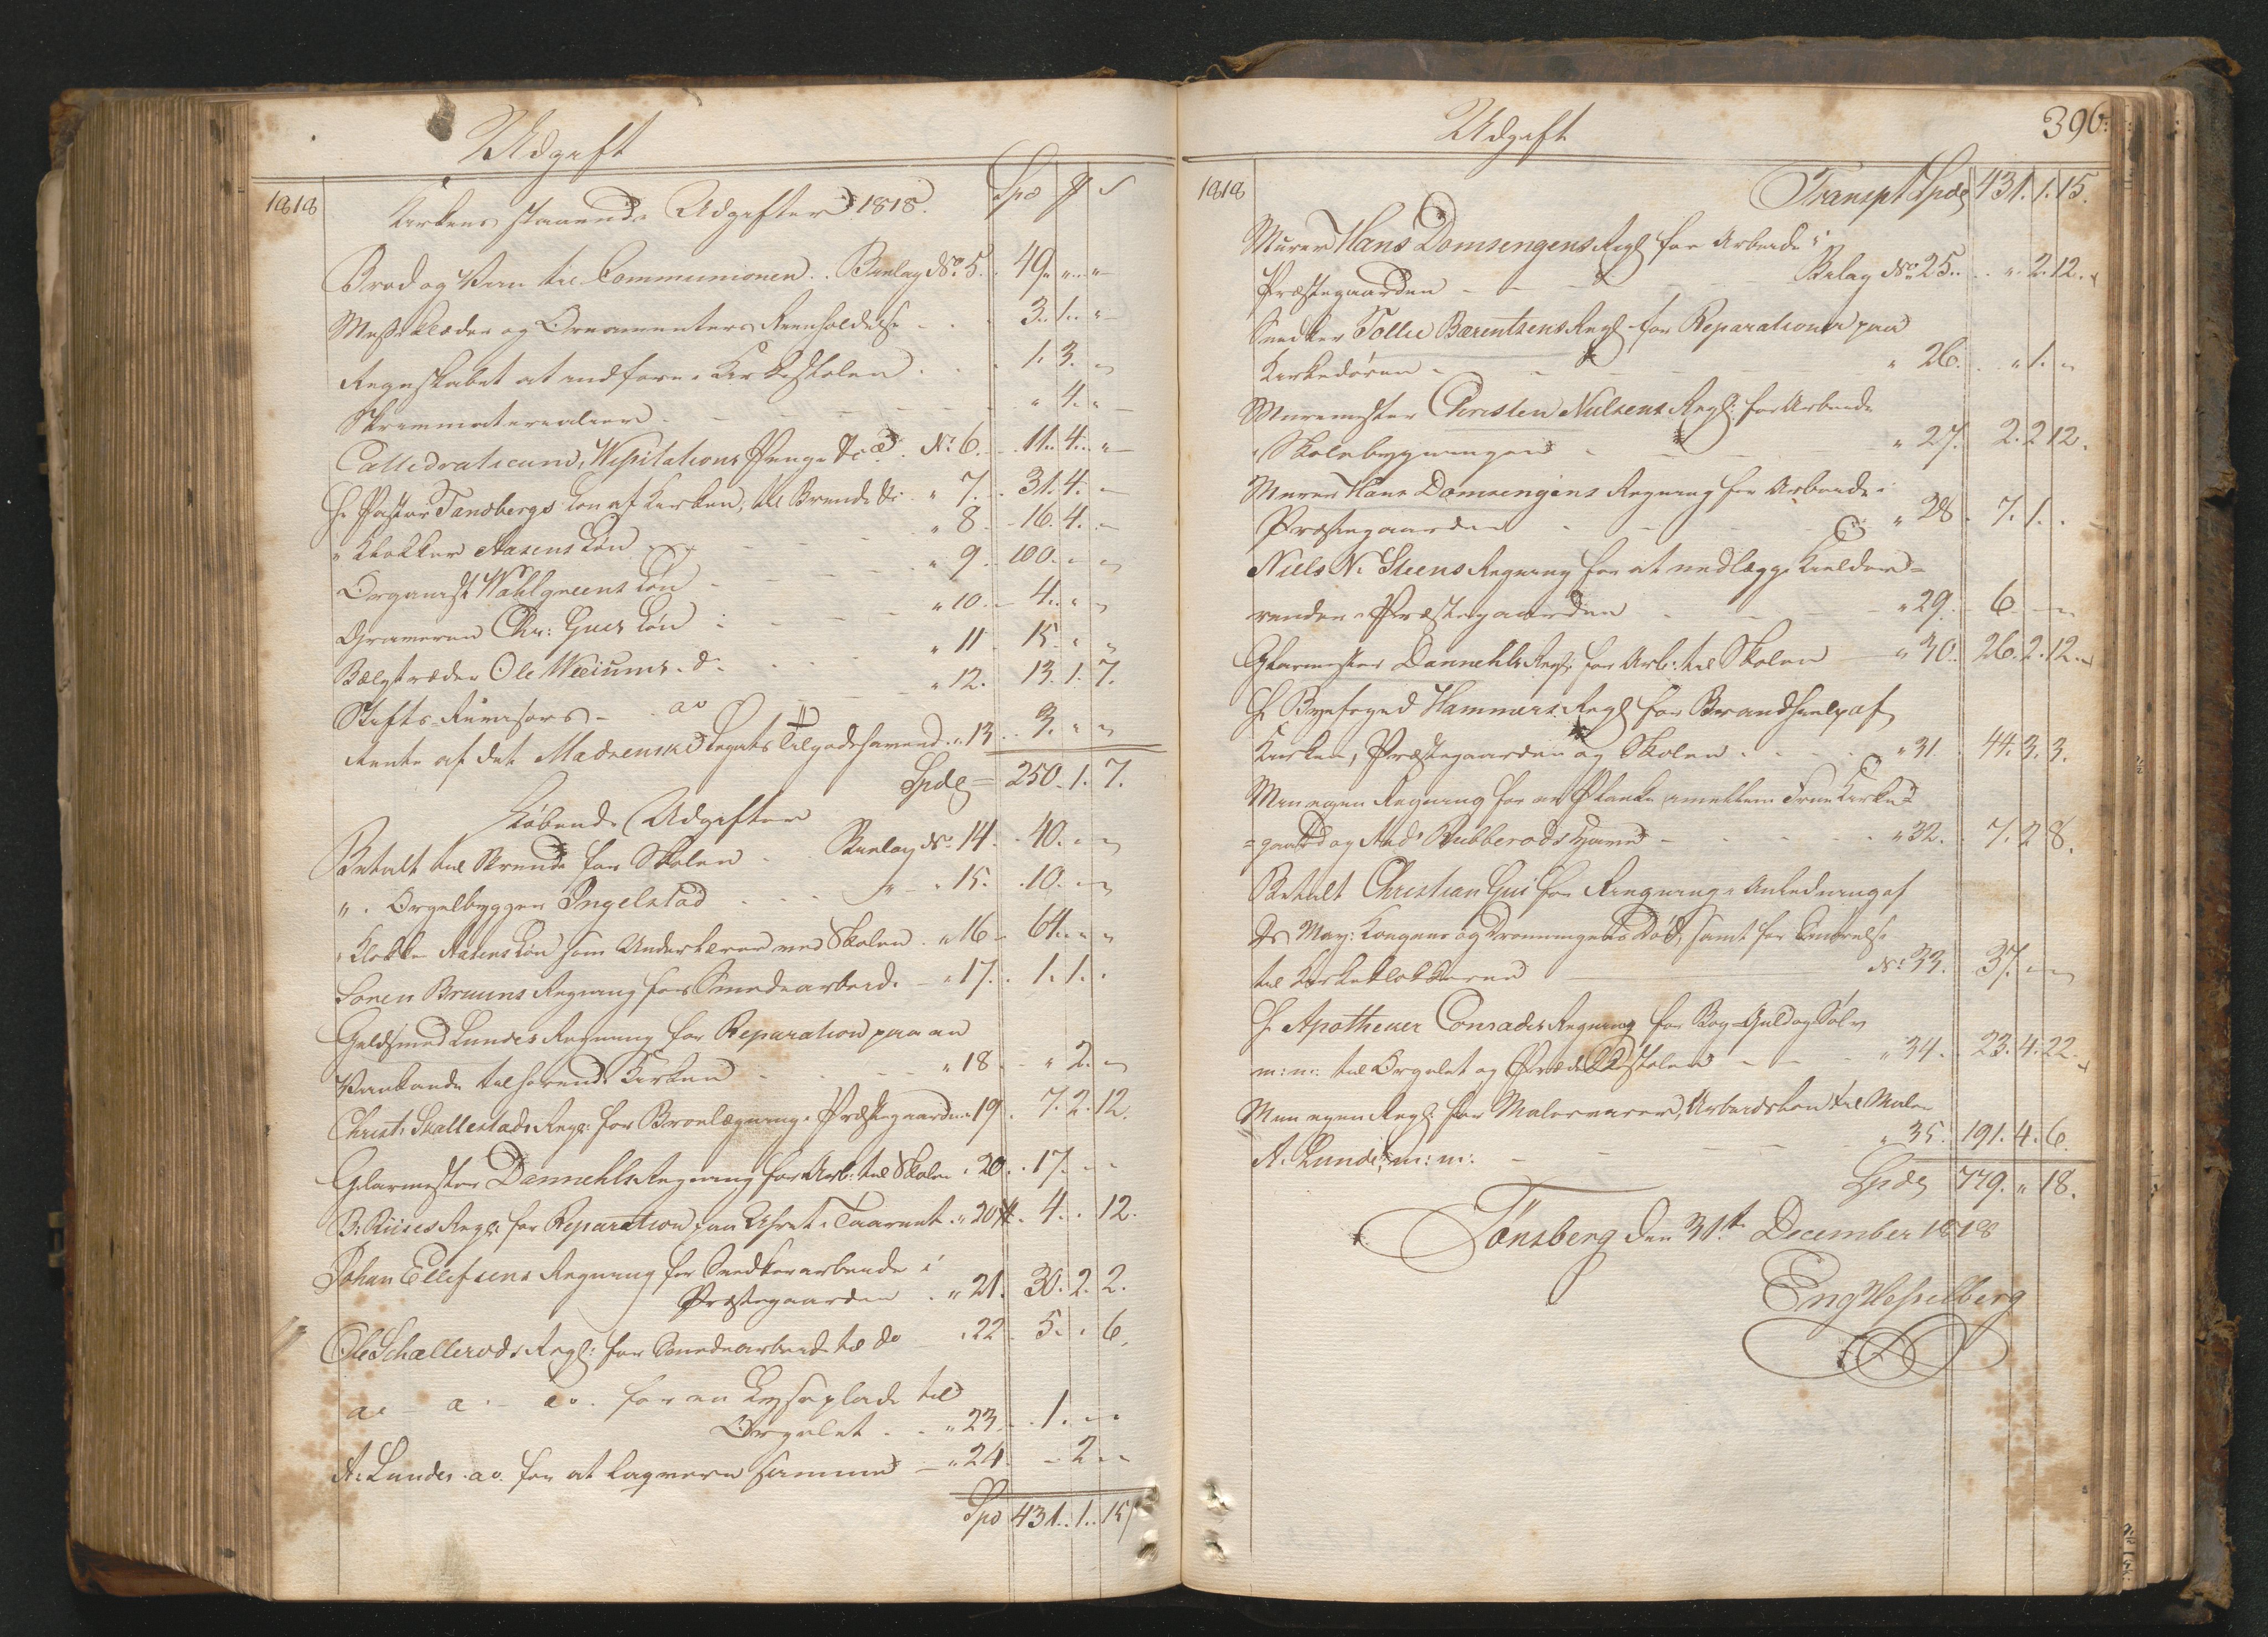 Udgift
1818
Kirkens staaende Udgifter 1818. Spd ß
Brød og Viin til Communionen . . Bielag No 5. 49. " "
Messeklæder og Ornamenters Reenholdelse - . . 3. 1. "
Regnskabet at indføre i Kirkestolen . . . 1. 3. "
Skrivmaterialier . - - - - " 4. "
Cathedraticum, Visitations Penge &c. No 6. 11. 4. "
H. Pastor Tandbergs Løn af Kirken, til Brænde &c " 7. 31. 4. "
" Klokker Aasens Løn " 8. 16. 4. "
Organist Wahlgreens Løn - " 9. 100. " "
Graveren Chr: Guis Løn : " 10. 4. " "
Bælgtræder Ole Weiums do " 11. 15. " "
Stifts-Revisors - do " 12. 13. 1. 7.
Rente af det Madsenske Legats Tilgodehavende " 13. 3. " "
Spdlr 250. 1. 7.
Løbende Udgifter
Betalt til Brænde for Skolen . Bielag No 14. 40. " "
" Orgelbygger Engelstad . . . " 15. 10. " "
" Klokker Aasens Løn som Underlærer ved Skolen . " 16. 64. " "
Søren Bruuns Regning for Smedearbeide - " 17. 1. 1. "
Guldsmed Lundes Regning for Reparation paa en
Viinkande tilhørende Kirken " 18. " 2. "
Christ: Skallestads Regn: for Broelægning i Præstegaarden " 19. 7. 2. 12.
Glarmester Dannehls Regning for Arb: til Skolen " 20. 17. " "
B: Riises Regn: for Reparation paa Uhret i Taarnet . " 20 4. " 12.
Johan Ellefsens Regning for Snedkerarbeide i
Præstegaarden . " 21. 30. 2. 2.
Ole Schallerods Regn: for Smedearbeide til do " 22. 5. " 6.
do - do - do. for en Lyseplade til
Orgelet . . " 23. 1. " "
A: Lundes . do. for at laqvere samme - " 24. - 2. "
Spd 431. 1. 15
Udgift
396.
1818
Transpt Spdlr 431. 1. 15.
Murer Hans Domsengens Regn for Arbeide i
Præstegaarden - - - Bilag No 25. " 2. 12.
Snedker Tollev Bærentsens Regn for Reparationer paa
Kirkedøren - - " 26. " 1. "
Muremester Christen Nielsens Regn: for Arbeide
i Skolebygningen - " 27. 2. 2 12.
Murer Hans Domsengens Regning for Arbeide i
Præstegaarden " 28. 7. 1. "
Niels N: Steens Regning for at nedlægge Kielder-
render i Præstegaarden - " 29. 6. " "
Glarmester Dannehls Regn: for Arb: til Skolen " 30. 26. 2. 12.
H Byefoged Hammers Regn for Brandhielp af
Kirken, Præstegaarden og Skolen . - " 31. 44. 3. 3.
Min egen Regning for en Planke imellem Frue Kirke-
=gaard og And: Bubberods Hauge - " 32. 7. 2 8.
Betalt Christian Gui for Ringning i Anledning af
Ds May: Kongens og Dronningens Død, samt for Smørelse
til Kirkeklokkerne No 33. 37. " "
H Apotheker Conradis Regning for Bog-Guld og Sølv
m: m: til Orgelet og Prædikestolen - - " 34. 23. 4. 22.
Min egen Regn: for Malervarer, Arbeidsløn til Maler
A: Lunde m: m: - " 35. 191. 4. 6.
Spdlr 779. " 18.
Tønsberg den 31te December 1818
Eng Hesselberg